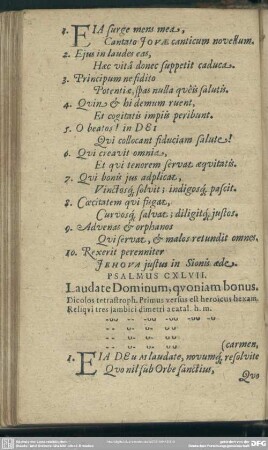 1. EIA surge mens mea,
Cantato JOVÆ canticum novellum.
2. Ejus in laudes eas,
Hac vitâ donec suppetit caduca.
3. Principum ne fidito
Potentiæ, spas nulla qvêis salutis.
4. Qvin & hi demum ruent,
Et cogitatis impiis peribunt.
5. O beatos! in DEI
Qui collocant fiduciam salute!
6. Qvi creavit omnia,
Et qvi tenorem servat æqvitatis.
7. Qvi bonis jus adplicat,
Vinctosq́; solvit; indigosq́; pascit.
8. Cœcitatem qvi fugat,
Curvosq́; salvat; diligitq́; justos.
9. Advenas & orphanos
Qvi servat, & malos retundit omnes.
10. Rexerit perenniter
JEHOVA justus in Sionis æde.
PSALMUS CXLVII.
Laudate Dominum, qvoniam bonus.
Dicolos tetrastroph. Primus versus est heroicus hexam.
Reliqvi tres jambici dimetri acatal. h. m.
(carmen,
1. EIA DEUM laudate, novumq́; resolvite
Qvo nil sub Orbe sanctius,
Qvo